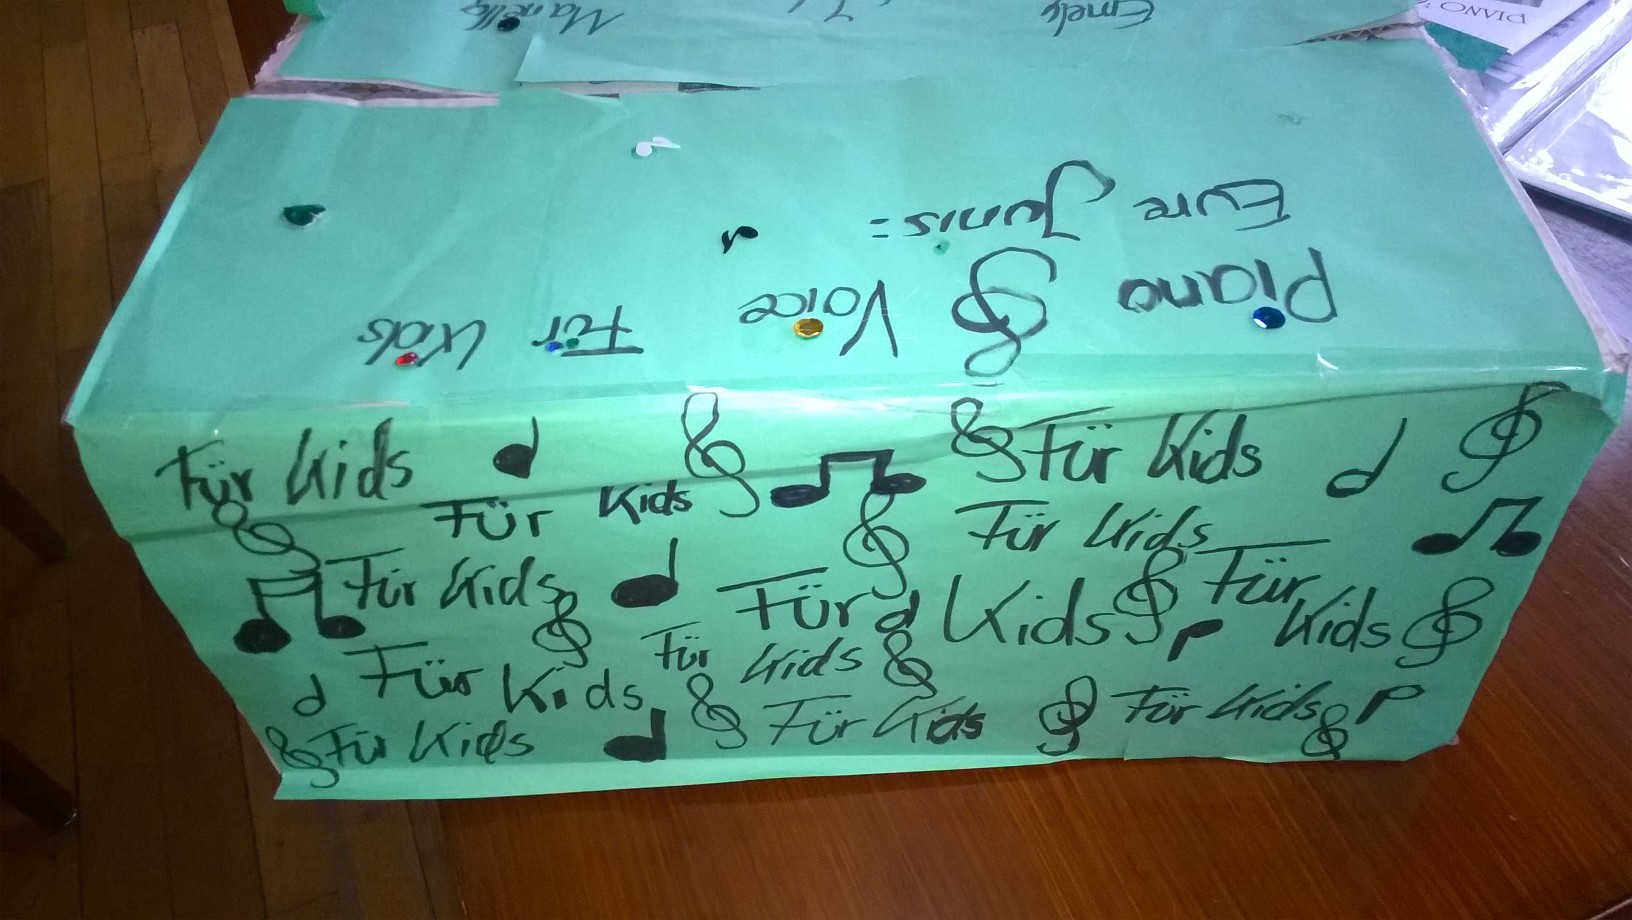 Piano Voice Für Kids
Eure Juris:
Emely
PIANO
Für Kids Für Kids
Für Kids Für Kids
Für Kids Für Kids Für Kids
Für Kids Für Kids
Für Kids Für Kids Für Kids